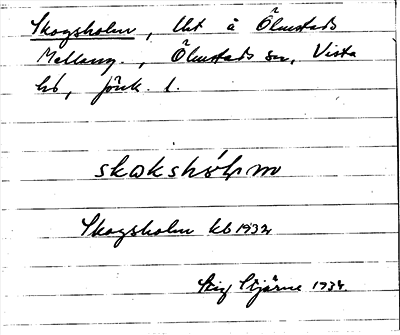 Skogsholm, lht å Ölmstads
Mellang., Ölmstads sn, Vista
hd, Jönk. l.
skɷkshólm
Skogsholm kb 1932
Stig Stjärne 1934